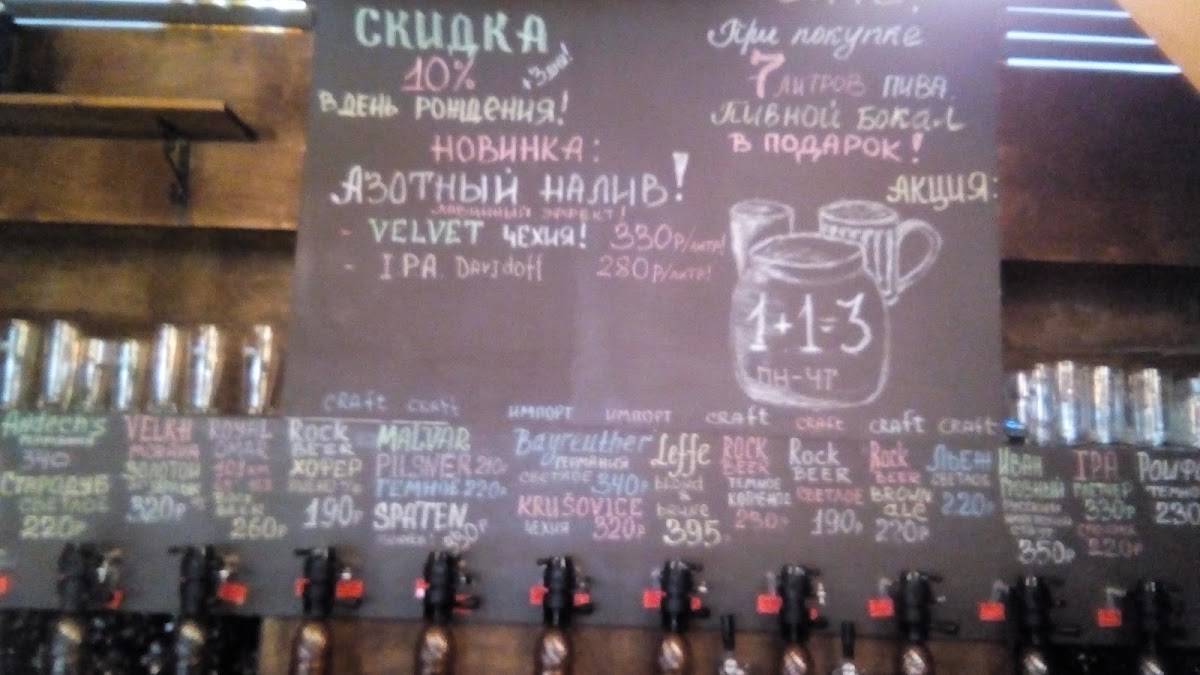 СКИДКА
10%
В ДЕНЬ РОЖДЕНИЯ!
НОВИНКА:
АЗОТНЫЙ НАЛИВ!
ЭФФЕКТ!
- VELVET ЧЕХИЯ! 330р/литр!
- IPA Davidoff 280р/литр!
При покупке
7 ЛИТРОВ ПИВА
ПИВНОЙ БОКАЛ
В ПОДАРОК!
АКЦИЯ:
1+1=3
ПН-ЧТ
craft craft ИМПОРТ ИМПОРТ craft craft craft craft
Andech's
340
СТАРОДУБ
СВЕТЛОЕ
220р
VELKA
МОРАВА
320р
ROYAL
260р
Rock
BEER
ХОФЕР
190р
MALVAR
PILSNER 210р
ТЕМНОЕ 220р
SPATEN
Bayreuther
ГЕРМАНИЯ
СВЕТЛОЕ 340р
KRUŠOVICE
ЧЕХИЯ 320р
Leffe
blond
&
brune
395
ROCK
BEER
ТЕМНОЕ
КОПЧЕНОЕ
Rock
BEER
СВЕТЛОЕ
190р
Rock
BEER
BROWN
ale
220р
ЛЬЕЖ
СВЕТЛОЕ
220р
ИВАН
ГРОЗНЫЙ
350р
IPA
330р
220р
ТЕМНОЕ
230р